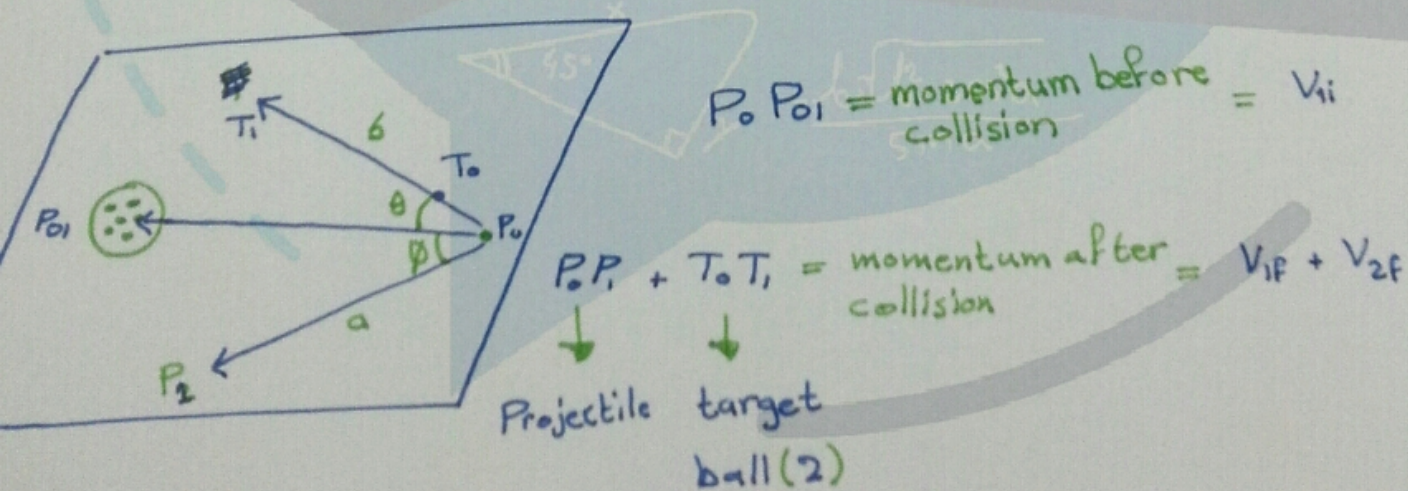 T₁
6
T₀
θ
P₀₁
P₀
φ
a
P₁
45°
P₀ P₀₁ = momentum before collision = V₁ᵢ
P₀P₁ + T₀T₁ = momentum after collision = V₁F + V₂F
↓ ↓
Projectile target
ball (2)